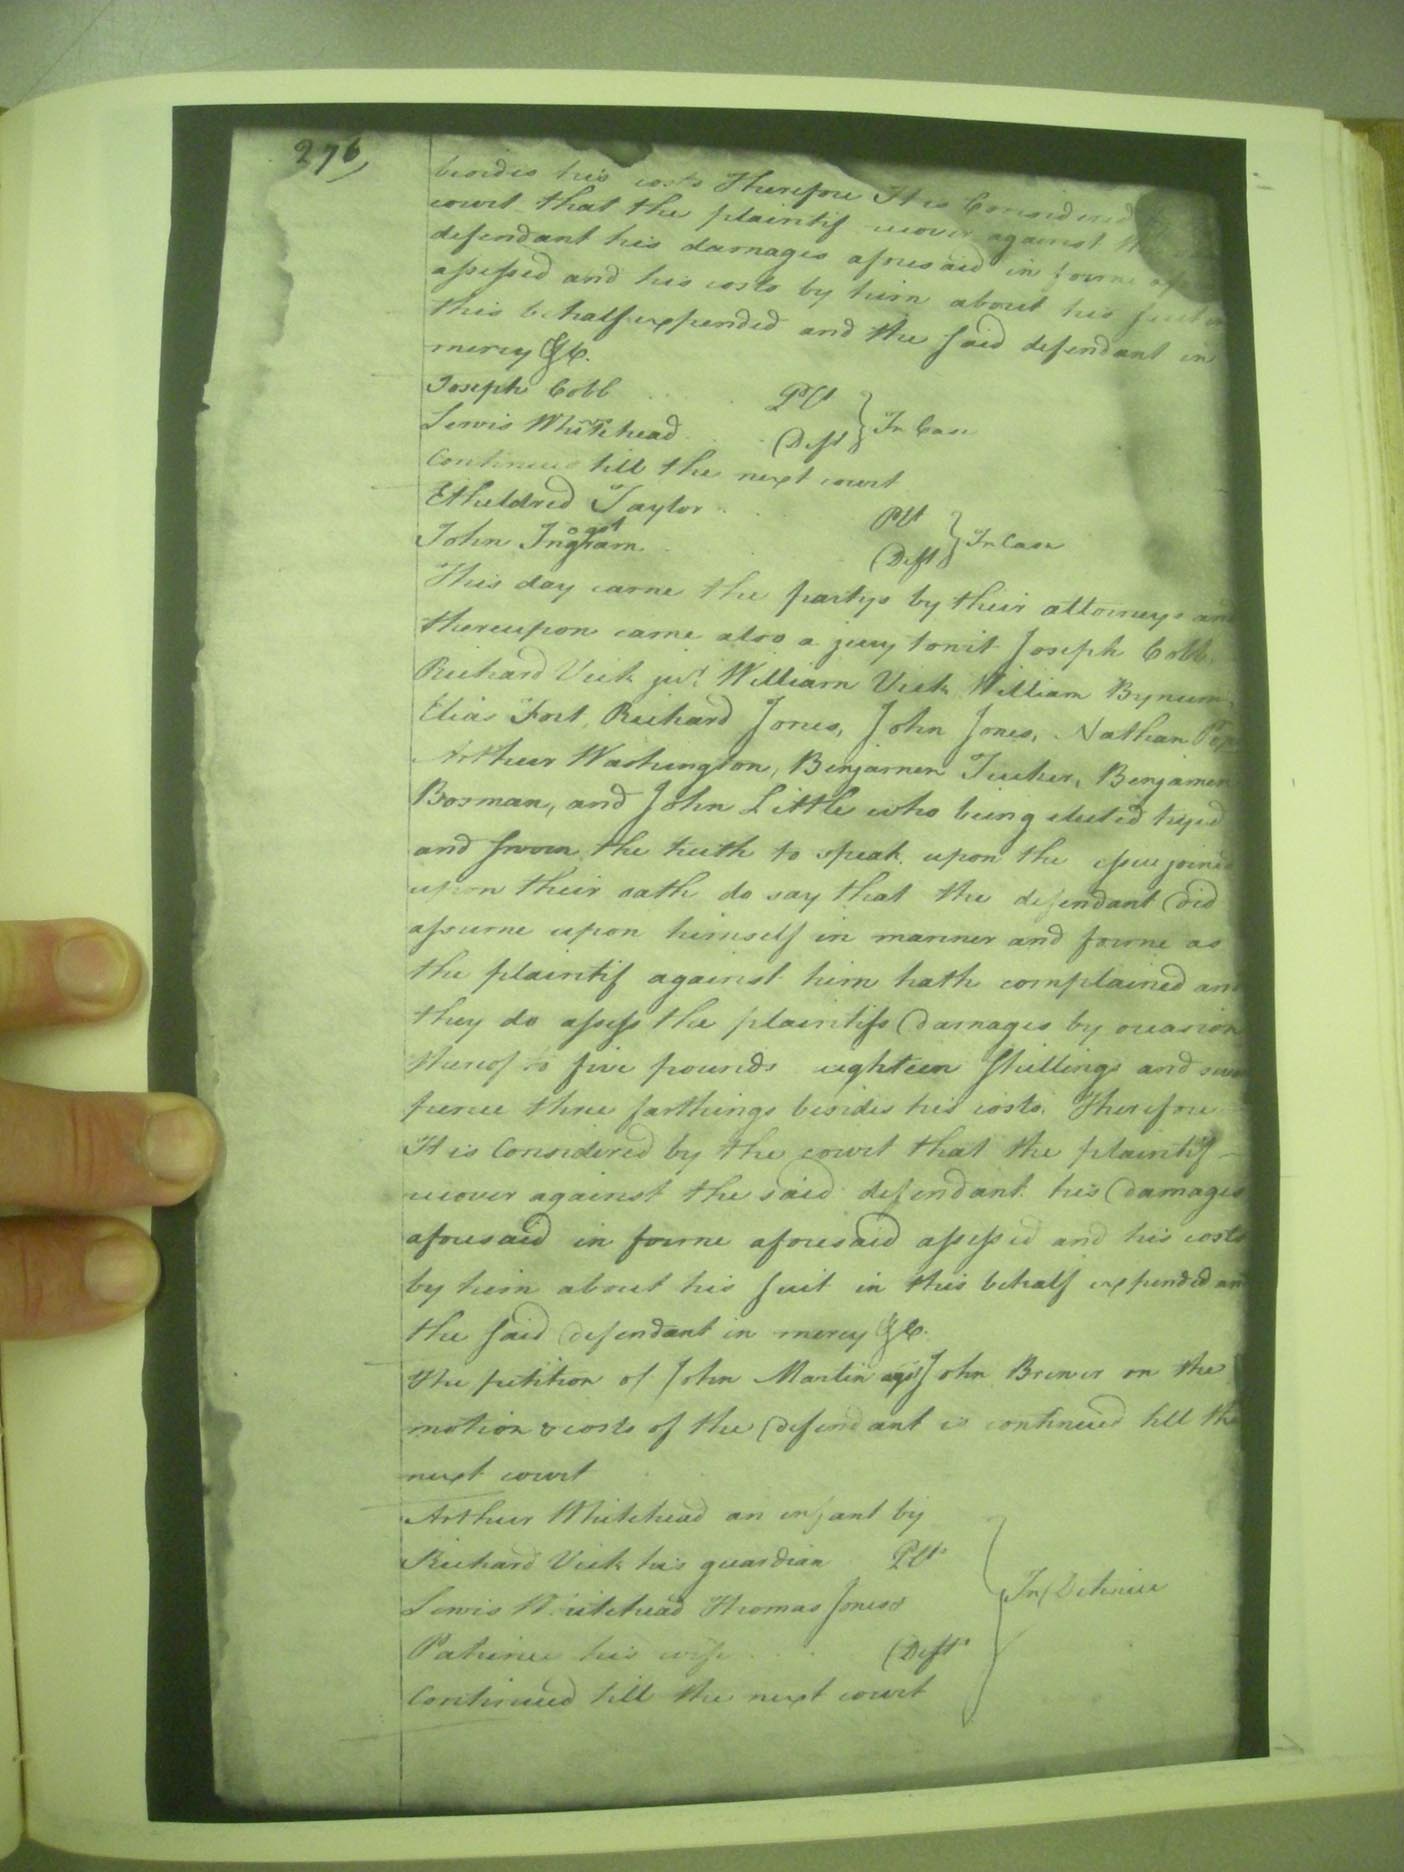 276
besides his costs Therefore It is Considered
court that the plaintif recover against the
defendant his damages aforesaid in forme
assessed and his costs by him about his suit in
this behalf expended and the said defendant in
mercy &C.
Joseph Cobb Plt
Lewis Whitehead Deft } In Case
Continued till the next court
Etheldred Taylor Plt
agst
John Ingram Deft } In Case
This day came the partys by their attorneys and
thereupon came also a jury towit Joseph Cobb,
Richard Vick junr William Vick William Bynum,
Elias Fort, Richard Jones, John Jones, Nathan
Arthur Washington, Benjamen Tucker, Benjamen
Bosman, and John Little who being elected tryed
and sworn the truth to speak upon the issue joined
upon their oath do say that the defendant did
assume upon himself in manner and forme as
the plaintif against him hath complained and
they do assess the plaintifs damages by occasion
thereof to five pounds eighteen Shillings and
pence three farthings besides his costs. Therefore
It is Considered by the court that the plaintif
recover against the said defendant his damages
aforesaid in forme aforesaid assessed and his costs
by him about his suit in this behalf expended and
the said defendant in mercy &C.
The petition of John Martin agst John Brewer on the
motion & costs of the defendant is continued till the
next court
Arthur Whitehead an infant by
Richard Vick his guardian Plt
Lewis Whitehead Thomas Jones &
Patience his wife Defts
} In Detinue
Continued till the next court